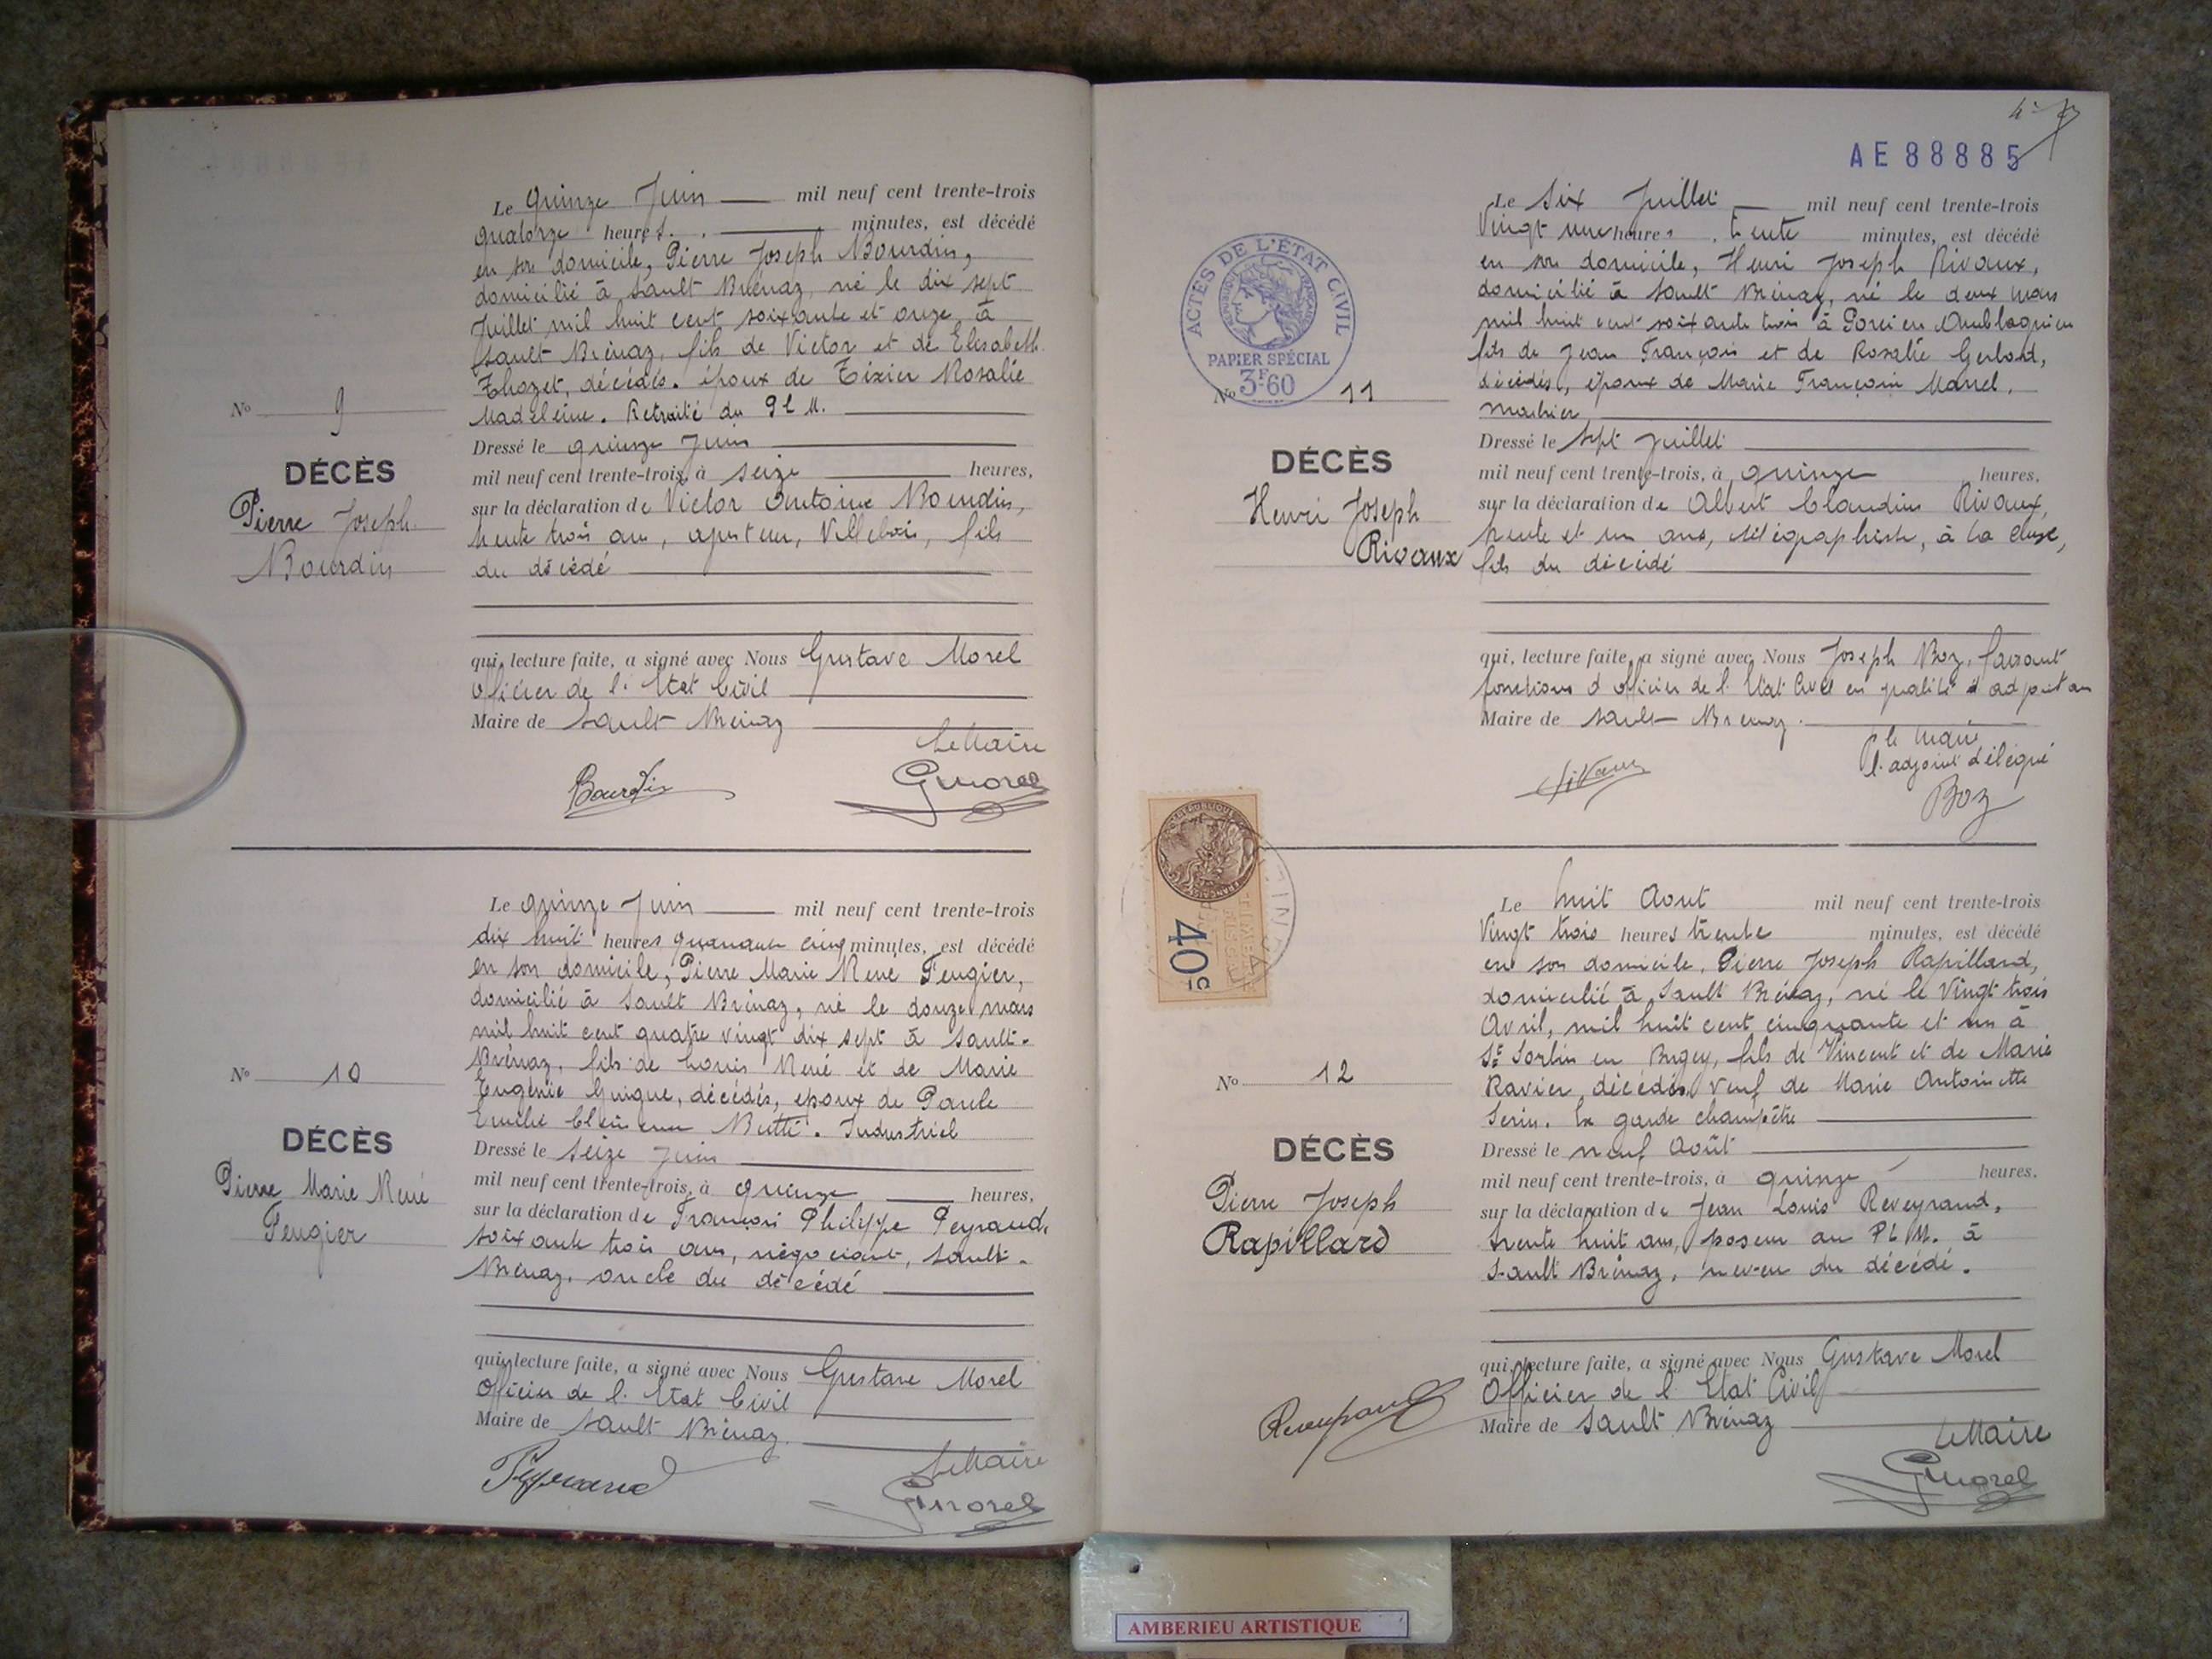 Le quinze Juin mil neuf cent trente-trois
quatorze heures. minutes, est décédé
en son domicile, Pierre Joseph Bourdin,
domicilié à Sault Brénaz, né le dix sept
Juillet mil huit cent soixante et onze, à
Sault Brénaz, fils de Victor et de Elisabeth
Thozet, décédés. époux de Tixier Rosalie
Madeleine. Retraité du P L M.
No 9
DÉCÈS
Pierre Joseph
Bourdin
Dressé le quinze Juin
mil neuf cent trente-trois, à seize heures,
sur la déclaration de Victor Antoine Bourdin,
trente trois ans, ajusteur, Villebois, fils
du décédé
qui, lecture faite, a signé avec Nous Gustave Morel
Officier de l'Etat Civil
Maire de Sault Brénaz
Le Maire
Bourdin GMorel
Le quinze Juin mil neuf cent trente-trois
dix huit heures quarante cinq minutes, est décédé
en son domicile, Pierre Marie René Feugier,
domicilié à Sault Brénaz, né le douze mars
mil huit cent quatre vingt dix sept à Sault-
Brénaz, fils de Louis René et de Marie
Eugénie Guigue, décédés, époux de Paule
Butti. Industriel
No 10
DÉCÈS
Pierre Marie René
Feugier
Dressé le seize Juin
mil neuf cent trente-trois, à quinze heures,
sur la déclaration de François Philippe Peyraud,
soixante trois ans, négociant, Sault-
Brénaz, oncle du décédé
qui, lecture faite, a signé avec Nous Gustave Morel
Officier de l'Etat Civil
Maire de Sault Brénaz.
Le Maire
Peyraud GMorel
AE 88885
ACTES DE L'ÉTAT CIVIL
PAPIER SPÉCIAL
3F60
Le six Juillet mil neuf cent trente-trois
Vingt une heures trente minutes, est décédé
en son domicile, Henri Joseph Rivaux,
domicilié à Sault Brénaz, né le deux mars
mil huit cent soixante trois à Porcieu Amblagnieu
fils de Jean François et de Rosalie Gerbord,
décédés, époux de Marie Françoise
No 11
DÉCÈS
Henri Joseph
Rivaux
Dressé le sept Juillet
mil neuf cent trente-trois, à quinze heures,
sur la déclaration de Albert Claudius Rivaux,
trente et un ans, télégraphiste, à La Cluse,
fils du décédé
qui, lecture faite, a signé avec Nous Joseph Boz, faisant
fonctions d'officier de l'Etat Civil en qualité d'adjoint au
Maire de Sault Brénaz.
P. le Maire
l'adjoint délégué
Rivaux Boz
40c
Le huit Aout mil neuf cent trente-trois
Vingt trois heures trente minutes, est décédé
en son domicile, Pierre Joseph Rapillard,
domicilié à Sault Brénaz, né le Vingt trois
Avril, mil huit cent cinquante et un à
St Sorlin en Bugey, fils de Vincent et de Marie
Ravier, décédés, veuf de Marie Antoinette
Serin. Ex garde champêtre
No 12
DÉCÈS
Pierre Joseph
Rapillard
Dressé le neuf Août
mil neuf cent trente-trois, à quinze heures.
sur la déclaration de Jean Louis Reveyrand,
trente huit ans, poseur au P L M. à
Sault Brénaz, neveu du décédé.
qui, lecture faite, a signé avec Nous Gustave Morel
Officier de l'Etat Civil
Maire de Sault Brénaz
Le Maire
Reveyrand GMorel
AMBERIEU ARTISTIQUE